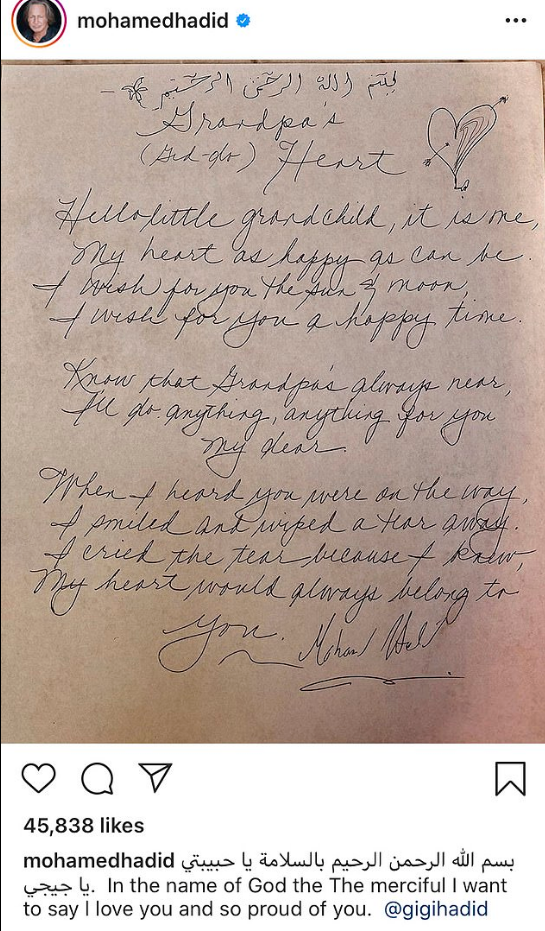 mohamedhadid
بسم الله الرحمن الرحيم
Grandpa's
(Gid-do) Heart
Hello little grandchild, it is me,
My heart as happy as can be.
I wish for you the sun & moon,
I wish for you a happy time.
Know that Grandpa's always near,
I'll do anything, anything for you
my dear.
When I heard you were on the way,
I smiled and wiped a tear away.
I cried the tear because I knew,
My heart would always belong to
you.
45,838 likes
mohamedhadid بسم الله الرحمن الرحيم بالسلامة يا حبيبتي
يا جيجي. In the name of God the The merciful I want
to say I love you and so proud of you. @gigihadid